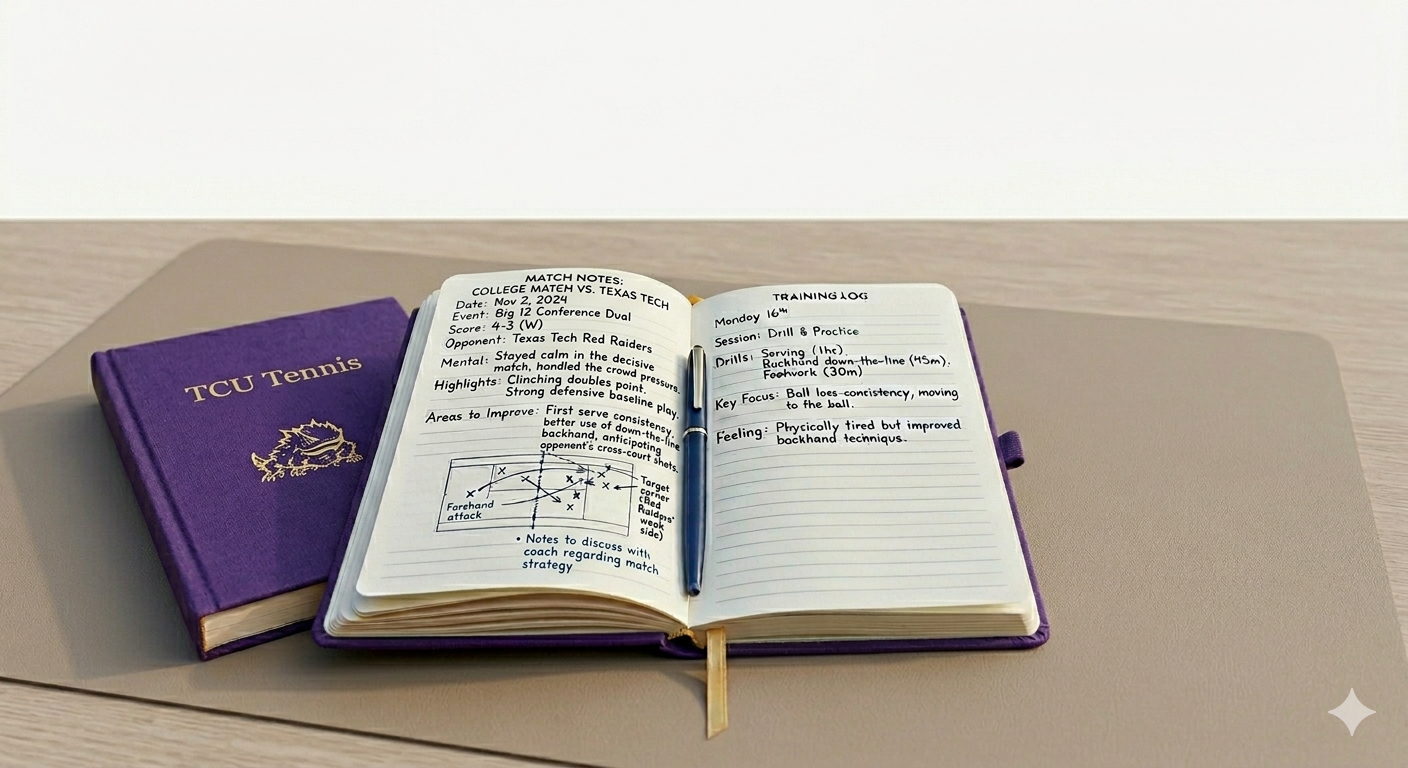 TCU Tennis
MATCH NOTES:
COLLEGE MATCH VS. TEXAS TECH
Date: Nov 2, 2024
Event: Big 12 Conference Dual
Score: 4-3 (W)
Opponent: Texas Tech Red Raiders
Mental: Stayed calm in the decisive
match, handled the crowd pressure.
Highlights: Clinching doubles point.
Strong defensive baseline play.
Areas to Improve: First serve consistency,
better use of down-the-line
backhand, anticipating
opponent's cross-court shots.
Forehand
attack
Target
corner
(Red
weak
side)
• Notes to discuss with
coach regarding match
strategy
TRAINING LOG
Monday 16th
Session: Drill & Practice
Drills: Serving (1hr).
down-the-line (45m).
Footwork (30m)
Key Focus: Ball moving
to the ball.
Feeling: Phycically tired but improved
backhand techniqus.